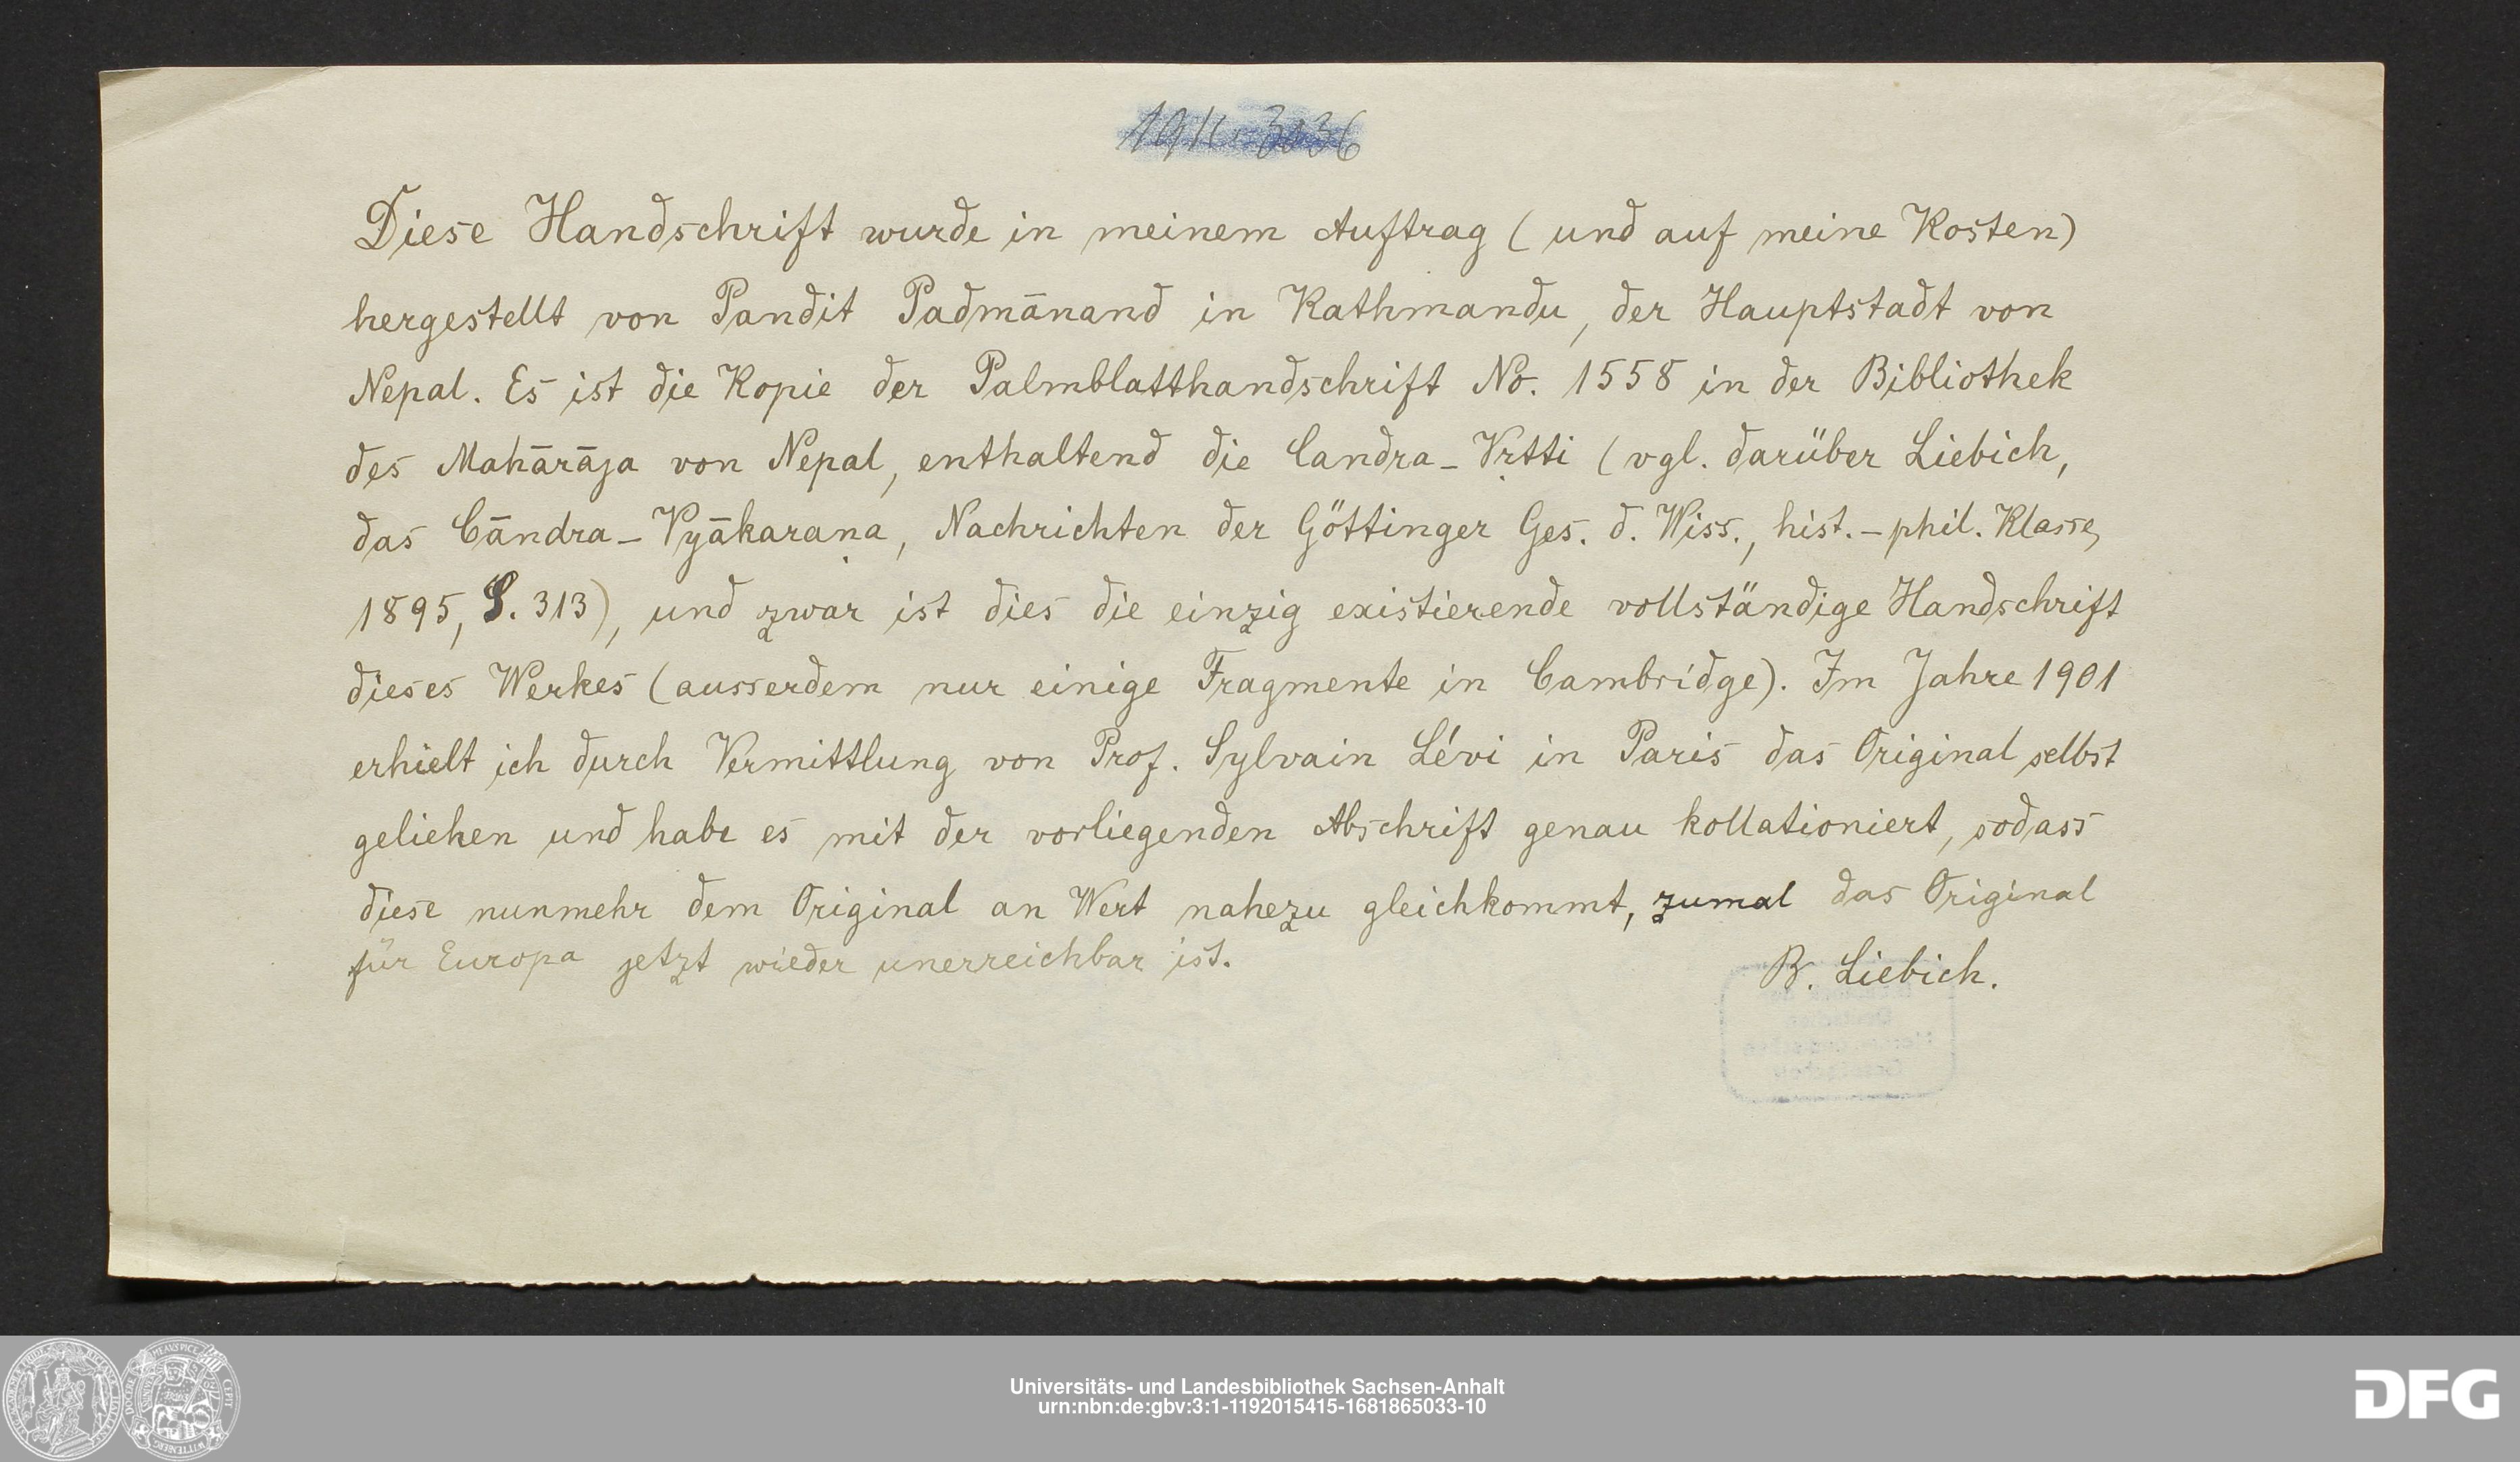 Diese Handschrift wurde in meinem Auftrag (und auf meine Kosten)
hergestellt von Pandit Padmānand in Kathmandu, der Hauptstadt von
Nepal. Es ist die Kopie der Palmblatthandschrift No. 1558 in der Bibliothek
des Mahārāja von Nepal, enthaltend die Candra-Vṛtti (vgl. darüber Liebich,
das Cāndra-Vyākaraṇa, Nachrichten der Göttinger Ges. d. Wiss., hist.-phil. Klasse,
1895, S. 313), und zwar ist dies die einzig existierende vollständige Handschrift
dieses Werkes (ausserdem nur einige Fragmente in Cambridge). Im Jahre 1901
erhielt ich durch Vermittlung von Prof. Sylvain Lévi in Paris das Original selbst
geliehen und habe es mit der vorliegenden Abschrift genau kollationiert, sodass
diese nunmehr dem Original an Wert nahezu gleichkommt, zumal das Original
für Europa jetzt wieder unerreichbar ist.
B. Liebich.
Universitäts- und Landesbibliothek Sachsen-Anhalt
urn:nbn:de:gbv:3:1-1192015415-1681865033-10
DFG